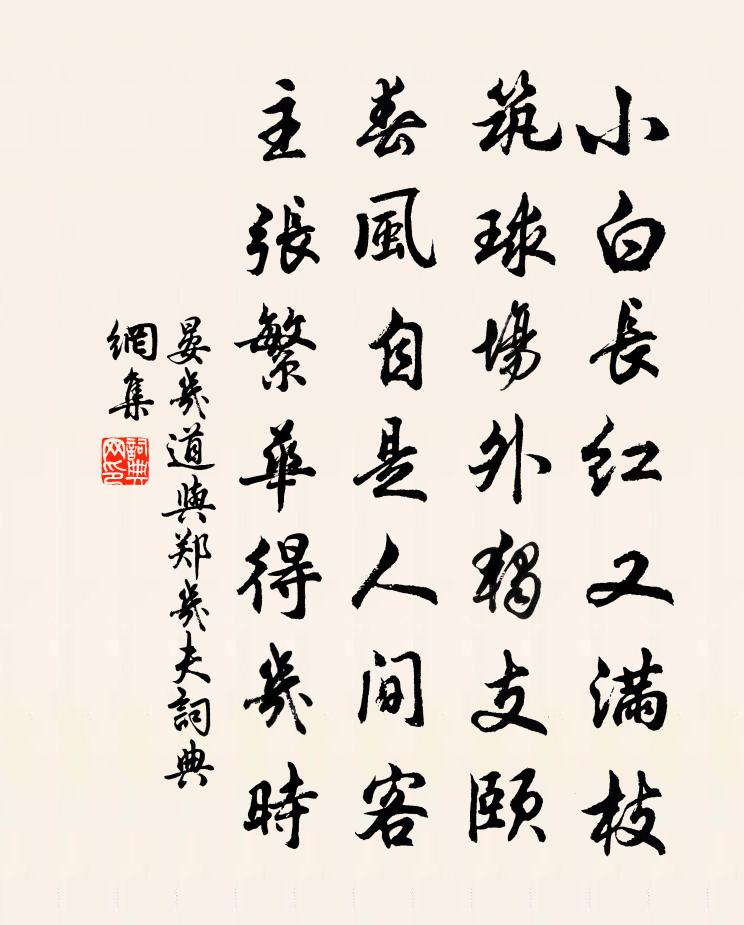 小白長红又滿枝
筑球場外獨支頤
春風自是人間客
主張繁華得幾時
晏幾道與郑幾夫詞典
網集
詞典网印